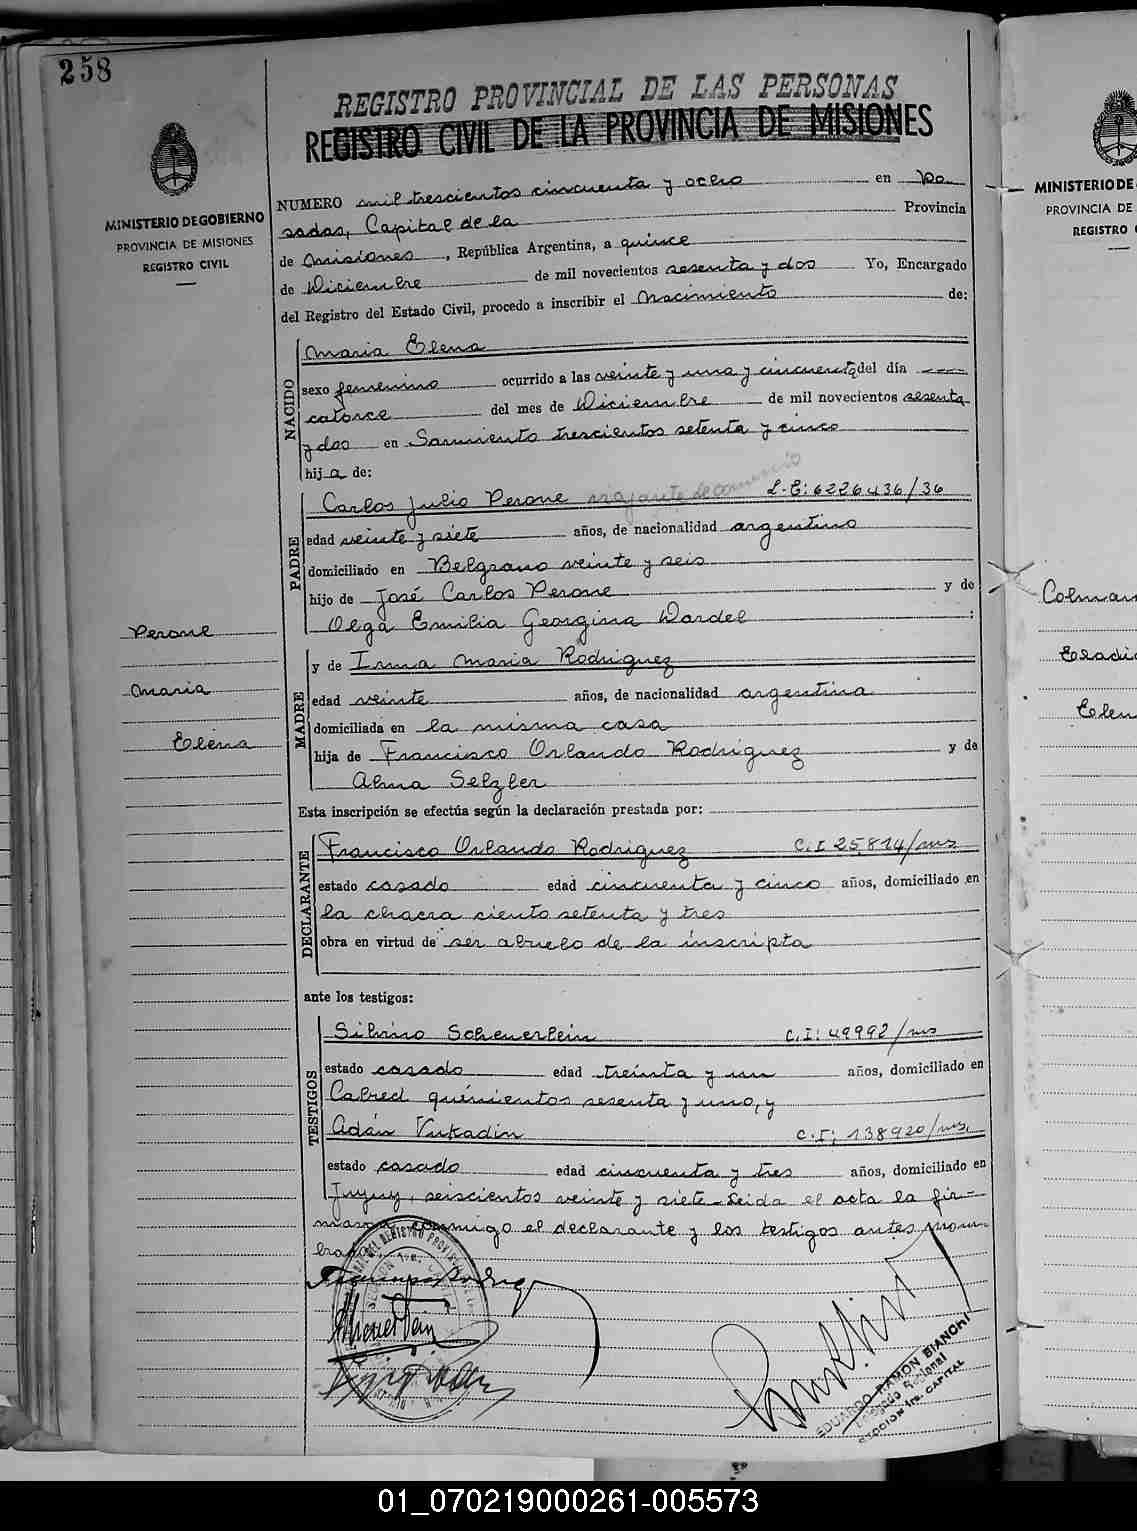 258
REGISTRO PROVINCIAL DE LAS PERSONAS
REGISTRO CIVIL DE LA PROVINCIA DE MISIONES
MINISTERIO DE GOBIERNO
PROVINCIA DE MISIONES
REGISTRO CIVIL
NUMERO mil trescientos cincuenta y ocho en Po
sadas, Capital de la Provincia
de Misiones, República Argentina, a quince
de Diciembre de mil novecientos sesenta y dos Yo, Encargado
del Registro del Estado Civil, procedo a inscribir el Nacimiento de:
NACIDO
Maria Elena
sexo femenino ocurrido a las veinte y una y cincuenta del día
catorce del mes de Diciembre de mil novecientos sesenta
y dos en Sarmiento trescientos setenta y cinco
hij a de:
PADRE
Carlos Julio Perone viajante de comercio L.E: 6226436/36
edad veinte y siete años, de nacionalidad argentino
domiciliado en Belgrano veinte y seis
hijo de José Carlos Perone y de
Olga Emilia Georgina Wardel ;
Perone
Maria
Elena
MADRE
y de Irma Maria Rodriguez
edad veinte años, de nacionalidad argentina
domiciliada en la misma casa
hija de Francisco Orlando Rodriguez y de
Alma Selzler
Esta inscripción se efectúa según la declaración prestada por:
DECLARANTE
Francisco Orlando Rodriguez C.I 25.814/ms
estado casado edad cincuenta y cinco años, domiciliado en
la chacra ciento setenta y tres
obra en virtud de ser abuelo de la inscripta
ante los testigos:
TESTIGOS
Silvino Scheuerlein C.I: 49992/ms
estado casado edad treinta y un años, domiciliado en
Cabred quinientos sesenta y uno, y
Adán Vukadin C.I: 138920/ms.
estado casado edad cincuenta y tres años, domiciliado en
Jujuy, seiscientos veinte y siete-Leida el acta la fir=
maron conmigo el declarante y los testigos antes nom
brados
EDUARDO RAMON BIANCHI
Delegado Seccional
SECCION 1ra. CAPITAL
MINISTERIO DE
PROVINCIA DE
REGISTRO
Colman
Eladio
Elen
01_070219000261-005573